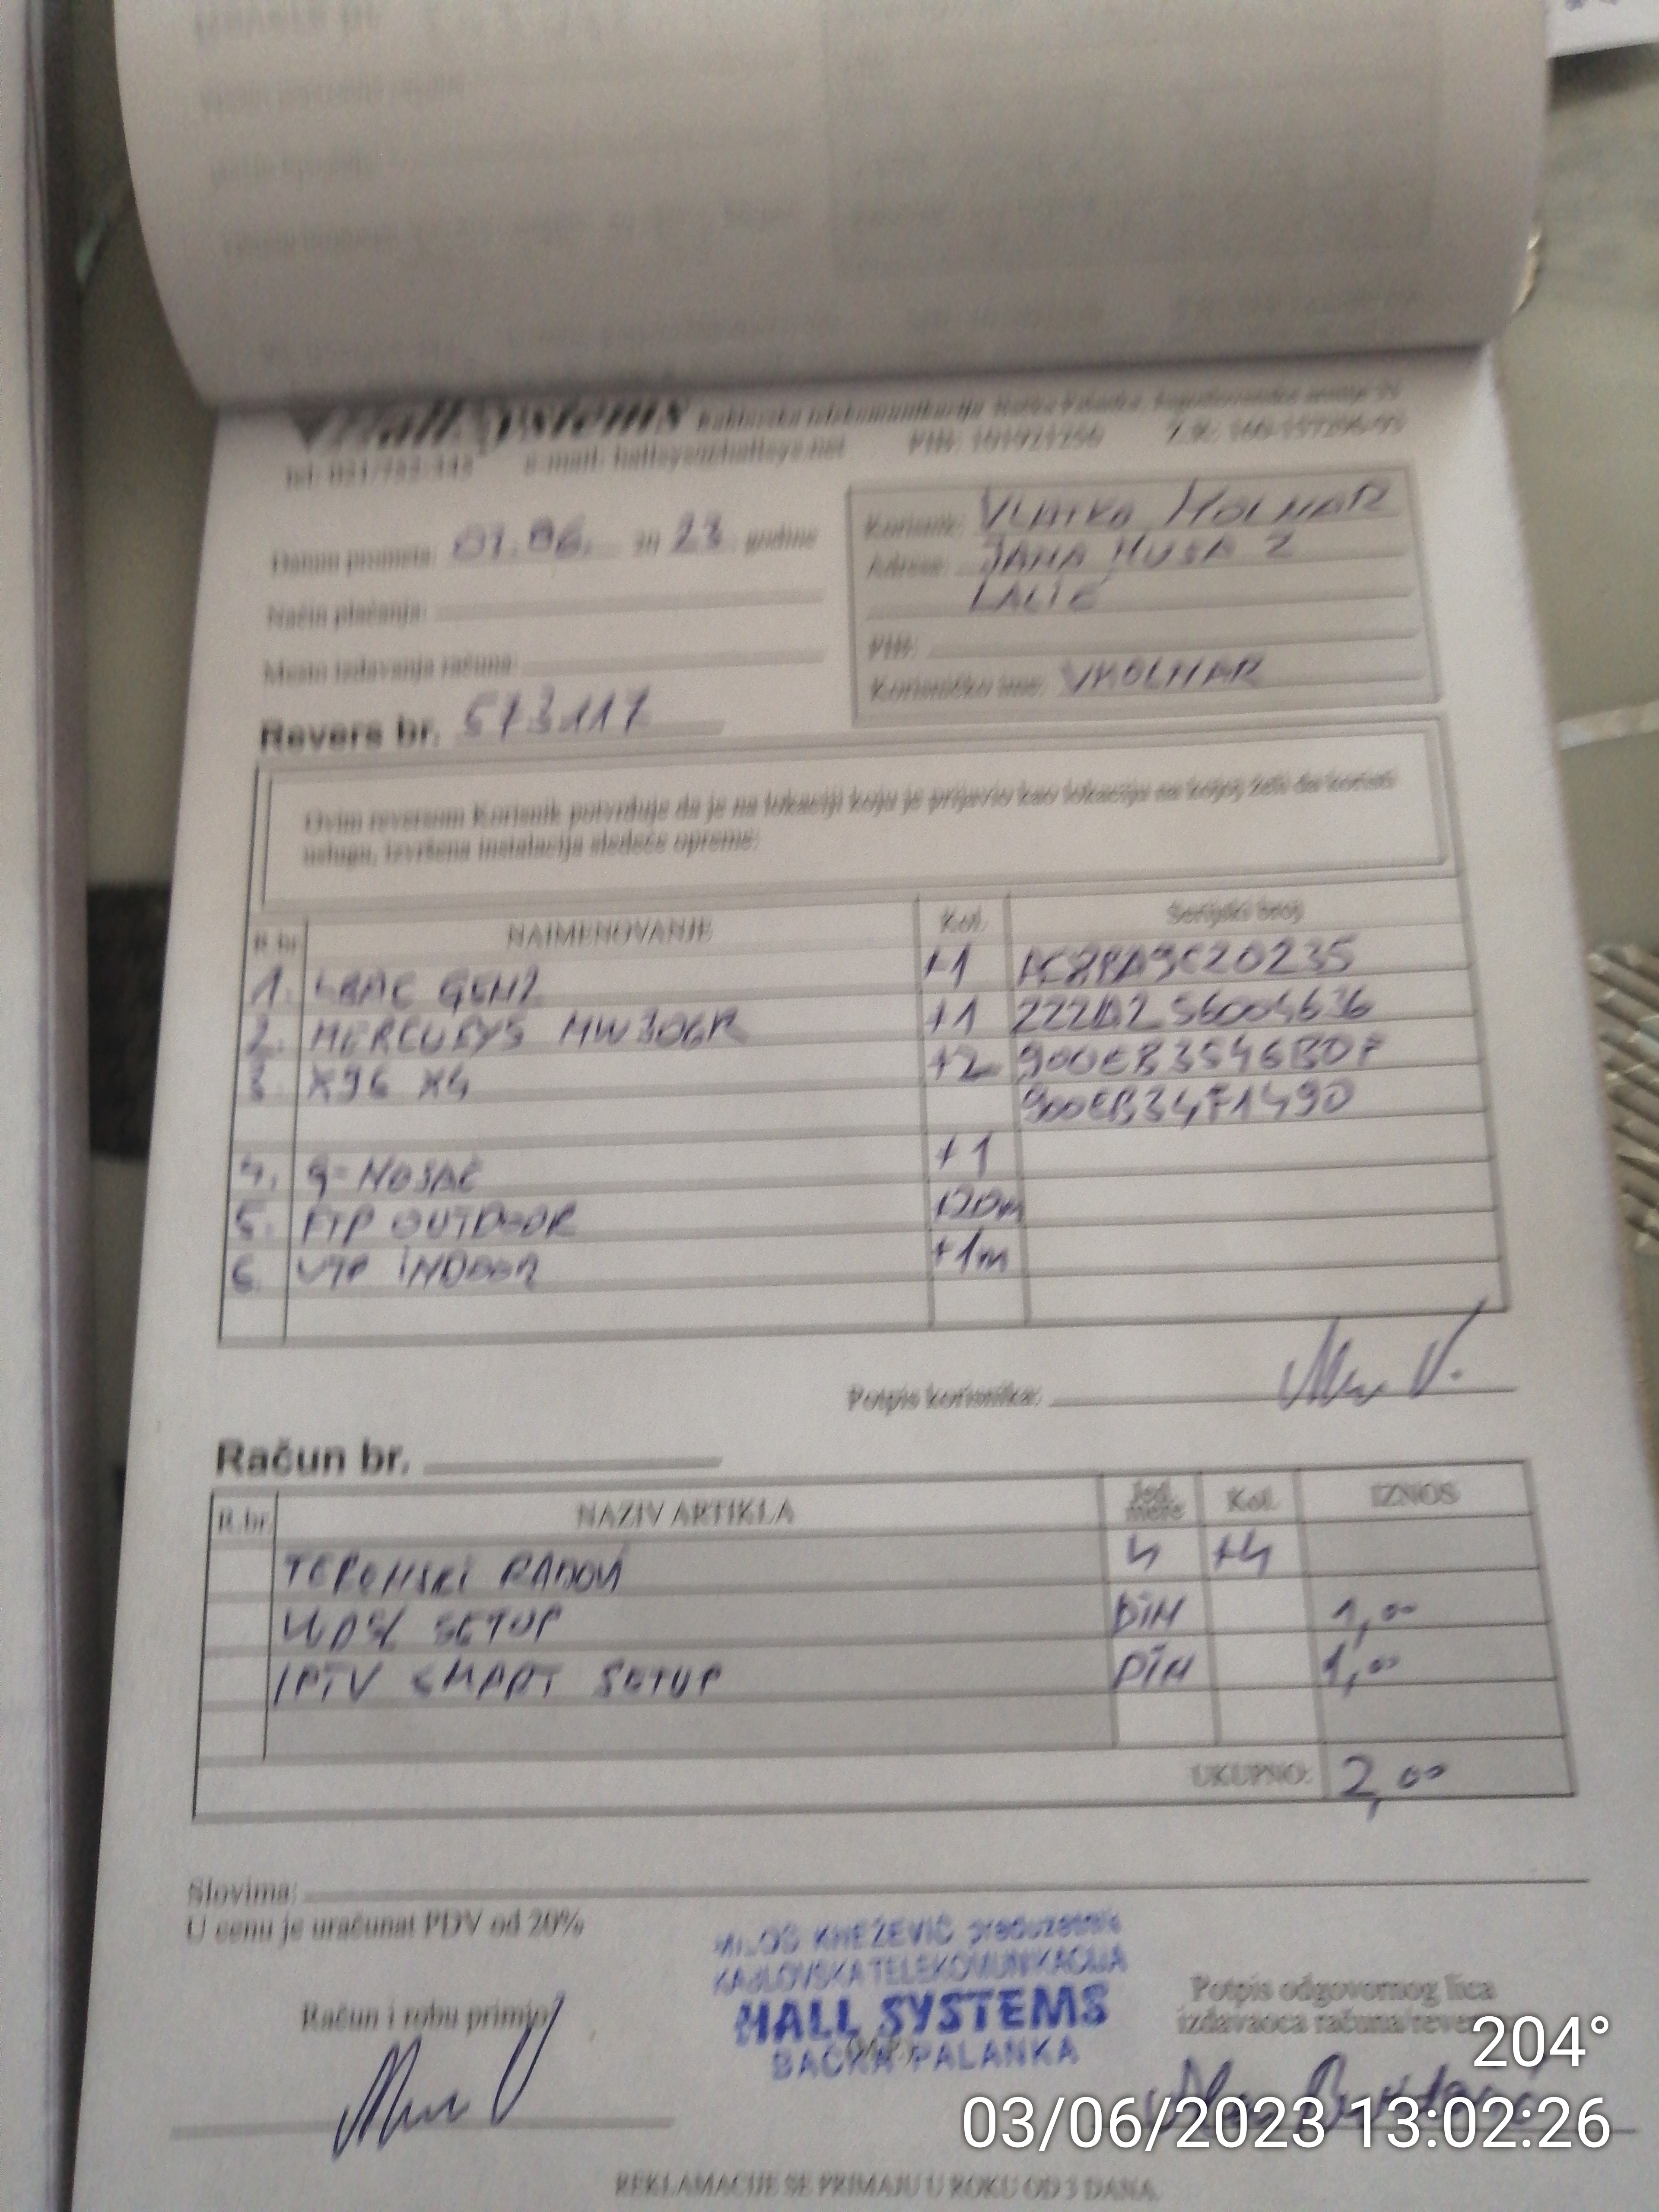 HallSystems Kablovska telekomunikacija Bačka Palanka,
tel: 021/752-343 e-mail: hallsys@hallsys.net PIB: 101921250 Ž.R: 160-157296-93
Datum prometa: 01.06. 20 23 godine
Način plaćanja:
Mesto izdavanja računa:
Revers br. 573117
Korisnik: VLATKO HOLNAR
Adresa: JANA HUSA 2
LALIĆ
PIB:
Korisničko ime: VHOLNAR
Ovim reversom Korisnik potvrđuje da je na lokaciji koju je prijavio kao lokaciju na kojoj želi da koristi
uslugu, izvršena instalacija sledeće opreme:
R.br. NAIMENOVANJE Kol. Serijski broj
1. LBAC GEN2 +1
2. MERCUSYS MW306R +1
3. X96 X4 +2 900EB3546BDF
900EB34F1490
4. g-NOSAČ +1
5. FTP OUTDOOR +20m
6. UTP INDOOR +1m
Potpis korisnika:
Račun br.
R.br. NAZIV ARTIKLA Jed. mere Kol. IZNOS
TERENSKI RADOVI h +4
WDSL SETUP DIN 1,00
IPTV SMART SETUP DIN 1,00
UKUPNO: 2,00
Slovima:
U cenu je uračunat PDV od 20%
MILOŠ KNEŽEVIĆ preduzetnik
KABLOVSKA TELEKOMUNIKACIJA
HALL SYSTEMS
BAČKA PALANKA
Račun i robu primio
Potpis odgovornog lica
izdavaoca računa/reversa
204°
03/06/2023 13:02:26
REKLAMACIJE SE PRIMAJU U ROKU OD 3 DANA.